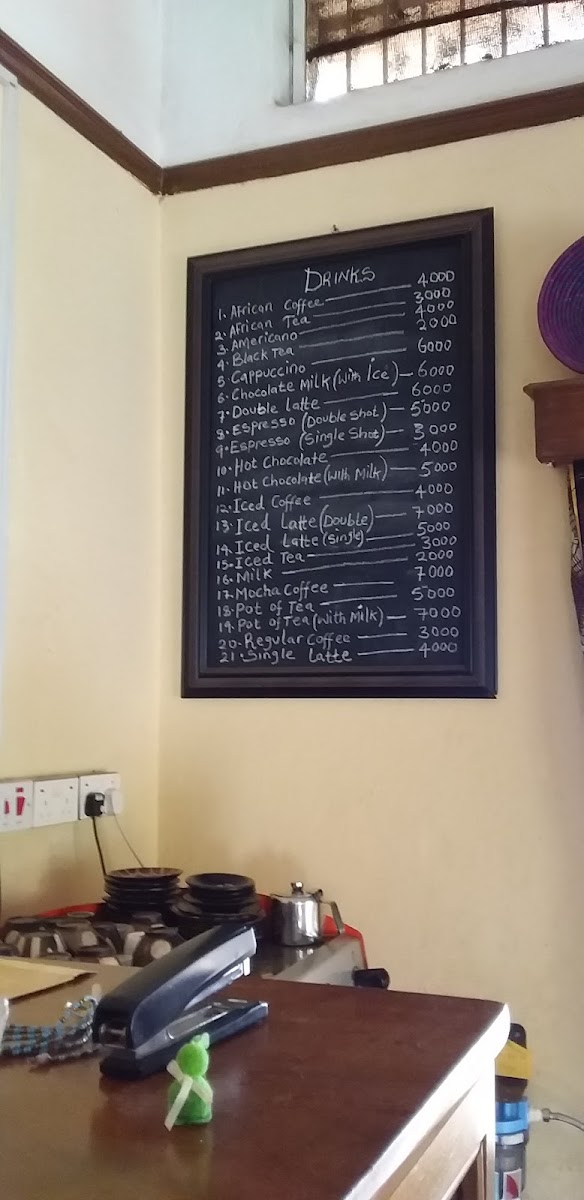 DRINKS
1. African Coffee 4.000
2. African Tea 3000
3. Americano 4000
4. Black Tea 2000
5. Cappuccino 6000
6. Chocolate Milk (with Ice) 6000
7. Double latte 6000
8. Espresso (Double shot) 5000
9. Espresso (Single Shot) 3000
10. Hot Chocolate 4000
11. Hot Chocolate (with Milk) 5000
12. Iced Coffee 4000
13. Iced Latte (Double) 7000
14. Iced Latte (single) 5000
15. Iced Tea 3000
16. Milk 2000
17. Mocha Coffee 7000
18. Pot of Tea 5000
19. Pot of Tea (with Milk) 7000
20. Regular Coffee 3000
21. Single latte 4000